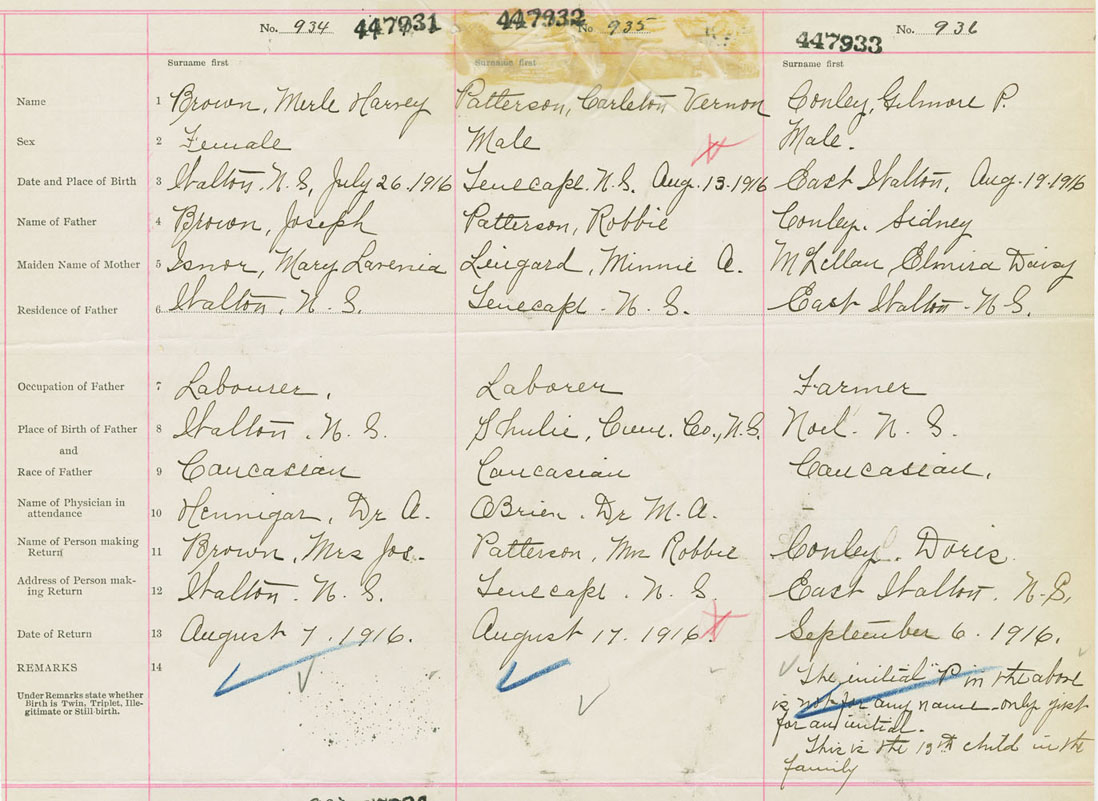 No. 934 447931 447932 No 935 447933 No. 936
Surname first Surname first Surname first
Name 1 Brown, Merle Harvey Patterson, Carleton Vernon Conley, Gilmore P.
Sex 2 Female Male Male.
Date and Place of Birth 3 Walton. N. S, July 26. 1916 Tenecape. N. S. Aug. 13. 1916 East Walton, Aug. 19. 1916
Name of Father 4 Brown, Joseph Patterson, Robbie Conley. Sidney
Maiden Name of Mother 5 Isnor, Mary Lavenia Lingard, Minnie A. McLellan, Elmira Daisy
Residence of Father 6 Walton. N. S. Tenecape. N. S. East Walton. N. S.
Occupation of Father 7 Labourer. Laborer Farmer
Place of Birth of Father 8 Walton. N. S. Shulie, Cum. Co., N. S. Noel. N. S.
and
Race of Father 9 Caucasian Caucasian Caucasian.
Name of Physician in
attendance 10 Hennigar, Dr A. OBrien. Dr M. A. –
Name of Person making
Return 11 Brown, Mrs Jos. Patterson, Mrs Robbie Conley. Doris.
Address of Person mak-
ing Return 12 Walton. N. S. Tenecape. N. S. East Walton. N. S.
Date of Return 13 August 7. 1916. August 17. 1916. September 6. 1916.
REMARKS 14
Under Remarks state whether
Birth is Twin, Triplet, Ille-
gitimate or Still-birth.
The initial "P in the above
is not for any name only just
for an initial.
This is the 13th child in the
family